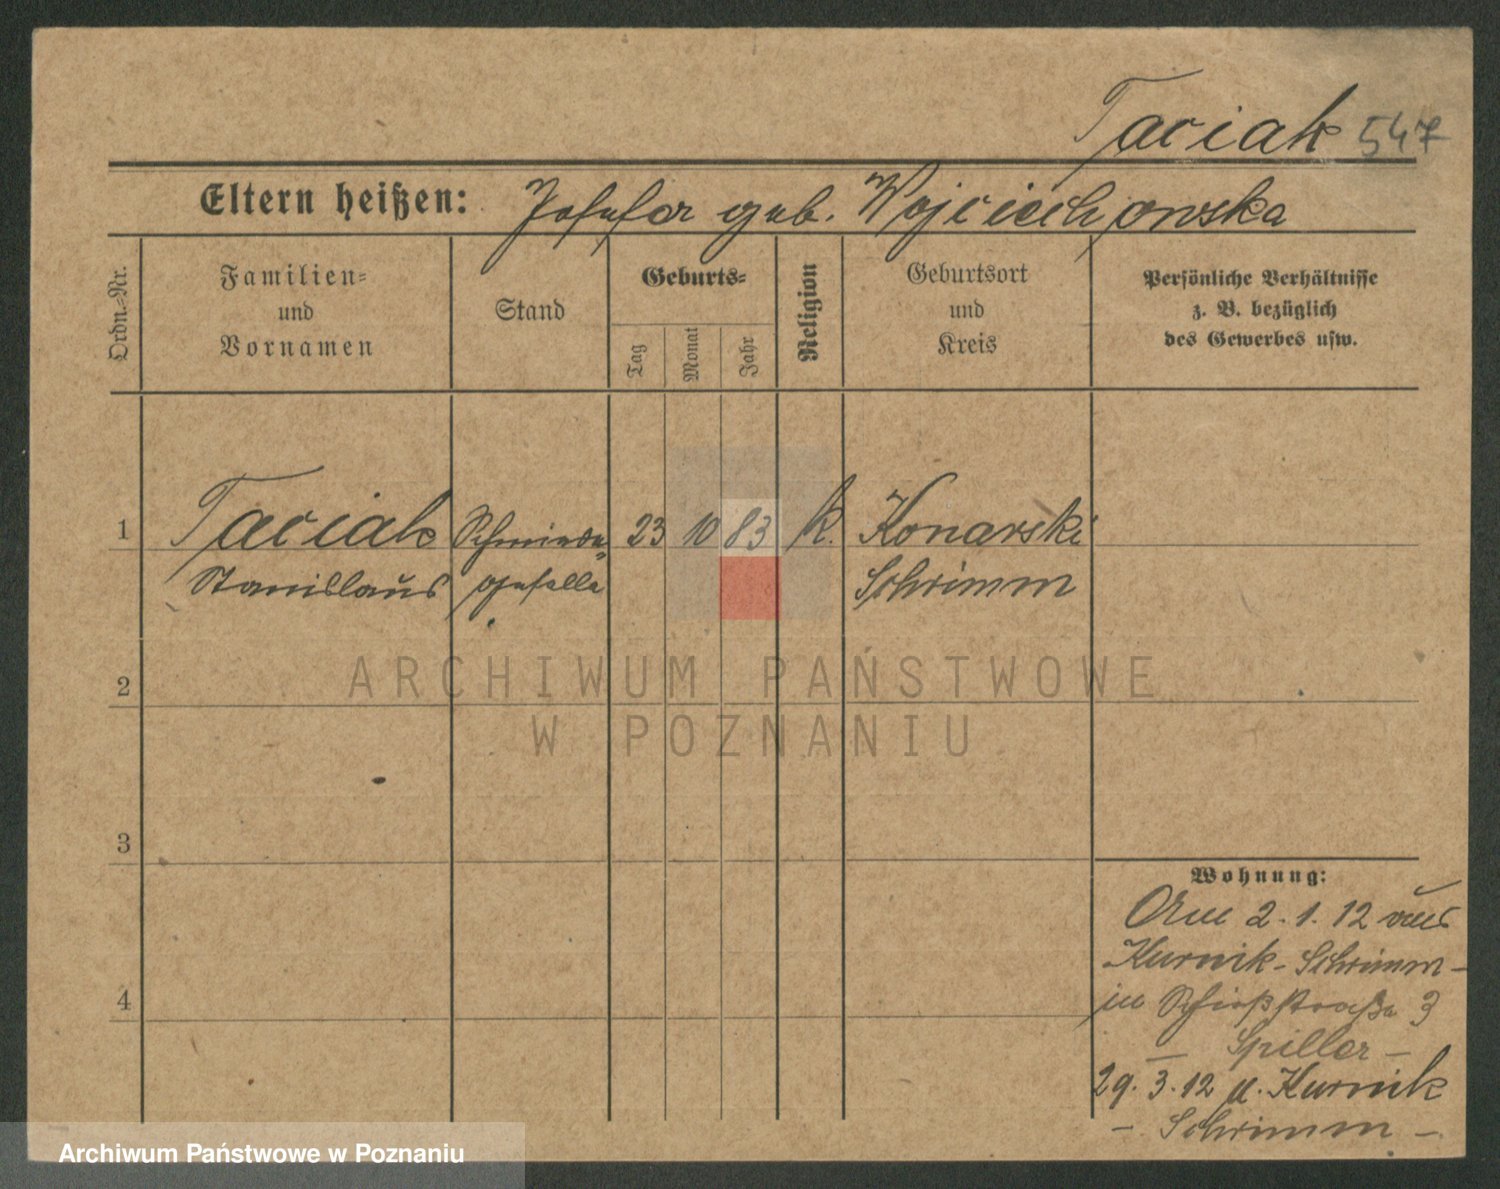 Taciak 547
Eltern heißen: Josefa geb. Wojciechowska
Ordn.-Nr.
Familien-
und
Vornamen
Stand
Geburts-
Tag
Monat
Jahr
Religion
Geburtsort
und
Kreis
Persönliche Verhältnisse
z. B. bezüglich
des Gewerbes usw.
1 Taciak Schmiede= 23 10 83 k. Konarski
Stanislaus geselle Schrimm
2
3
4
Wohnung:
2.1.12 aus
Kurnik-Schrimm-
in Schießstraße 3
- Spiller -
29.3.12 n. Kurnik
- Schrimm -
ARCHIWUM PAŃSTWOWE
W POZNANIU
Archiwum Państwowe w Poznaniu